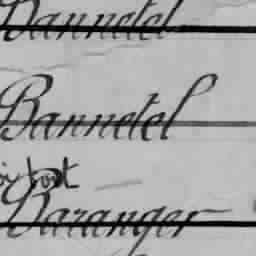 Bannetel
Bannetel
Baranger